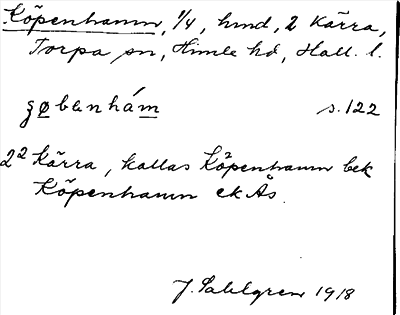 Köpenhamn, 1/4, hmd, 2 Kärra,
Torpa sn, Himle hd, Hall. l.
s. 122
2² Kärra, kallas Köpenhamn bek
Köpenhamn ek Ås.
J. Sahlgren 1918